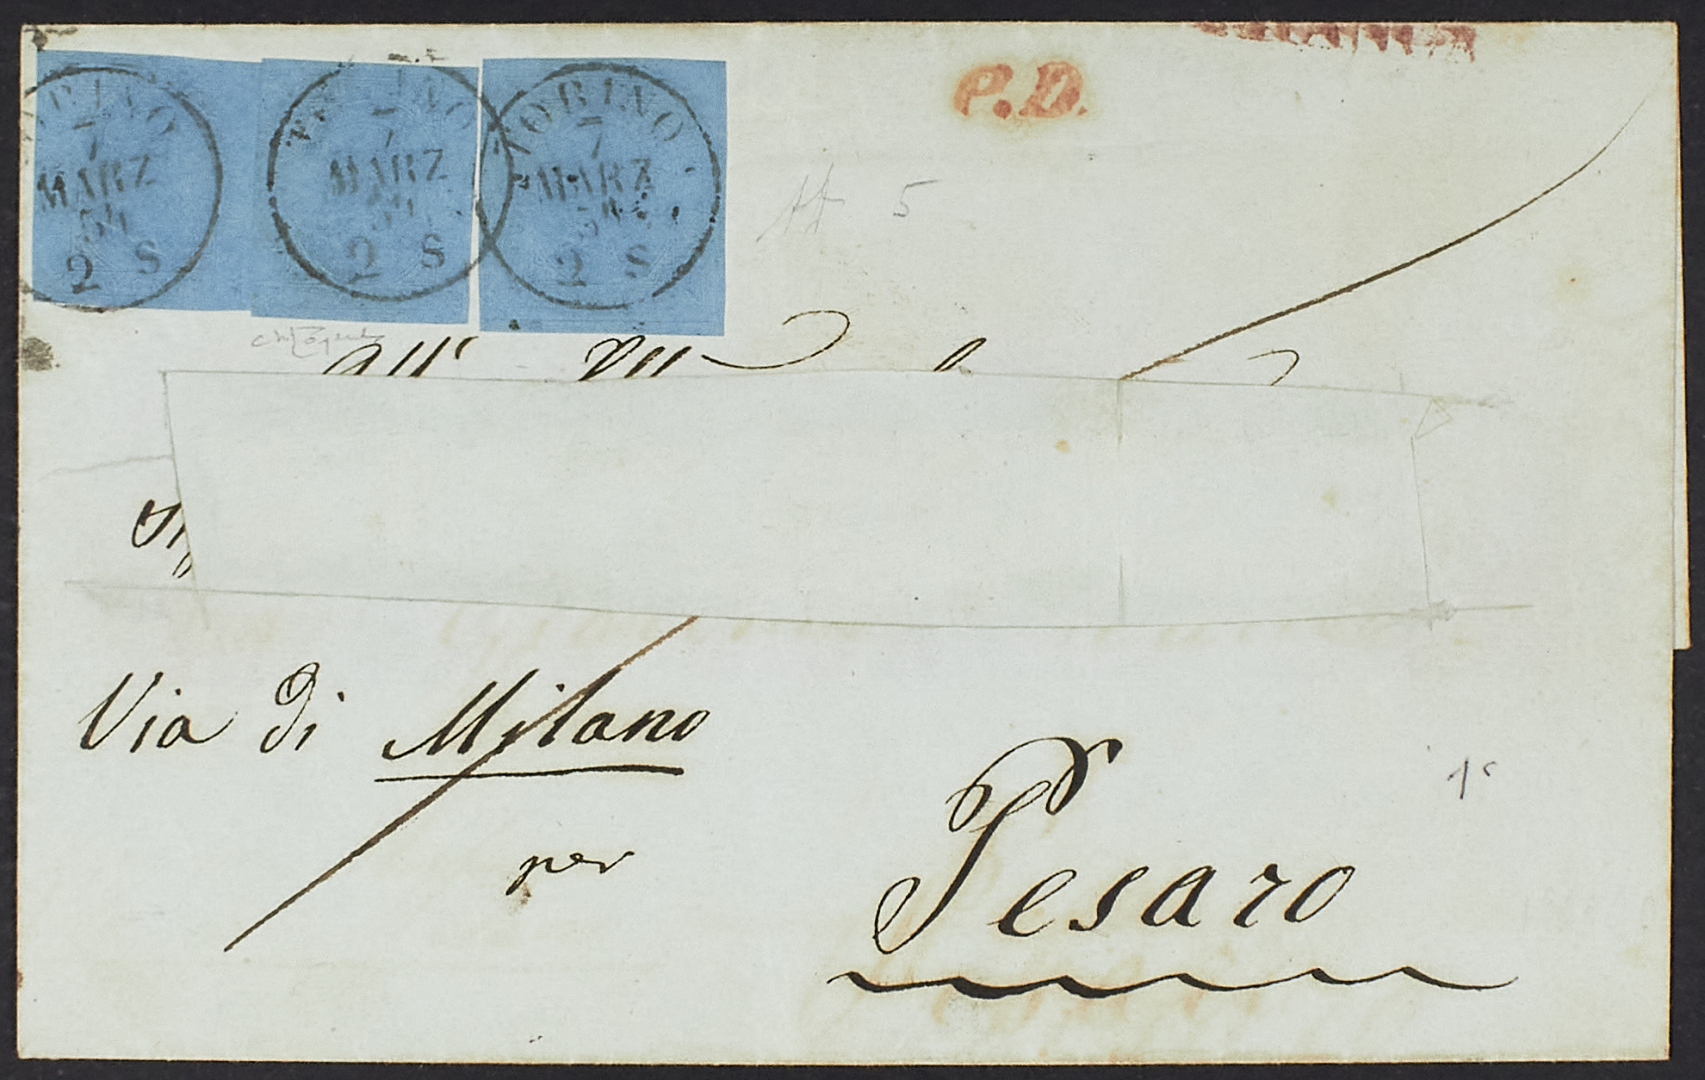 TORINO
7
MARZ
54
2 S
TORINO
7
MARZ
54
2 S
TORINO
7
MARZ
54
2 S
P.D.
5
All'
Via di Milano
per
Pesaro